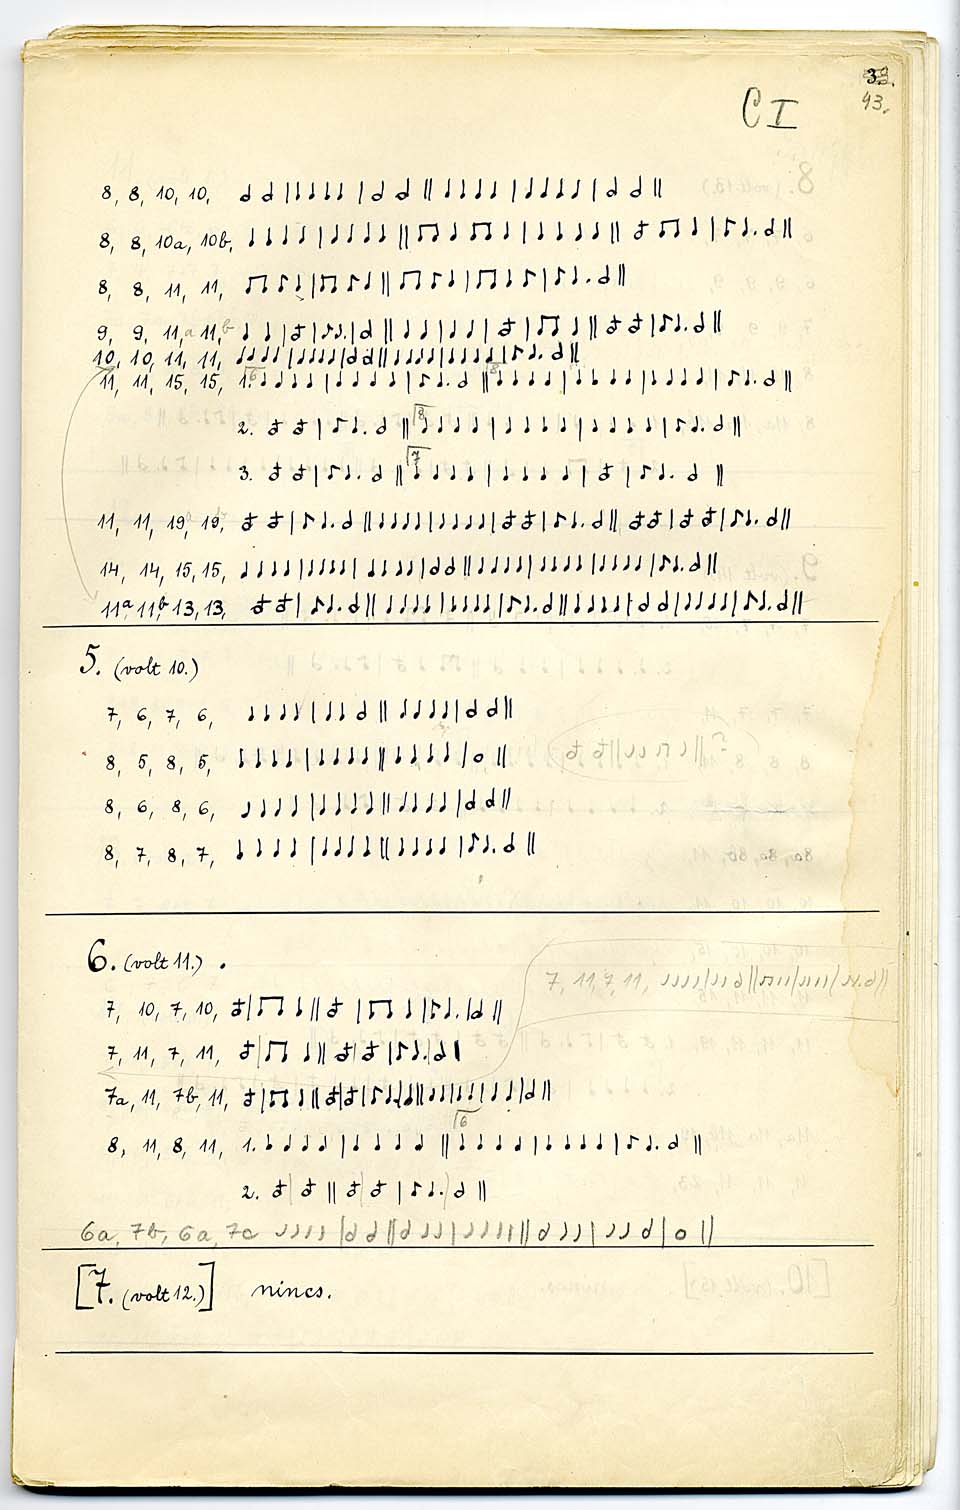 43.
C I
8, 8, 10, 10,
8, 8, 10a, 10b,
8, 8, 11, 11,
9, 9, 11,a 11,b
10, 10, 11, 11,
11, 11, 15, 15, 1. 6 8
2. 8
3. 7
11, 11, 19, 19,
14, 14, 15, 15,
11a, 11b, 13, 13,
5. (volt 10.)
7, 6, 7, 6,
8, 5, 8, 5,
8, 6, 8, 6,
8, 7, 8, 7,
6. (volt 11.)
7, 11, 7, 11,
7, 10, 7, 10,
7, 11, 7, 11,
7a, 11, 7b, 11,
8, 11, 8, 11, 1. 6
2.
6a, 7b, 6a, 7c
[7. (volt 12.)] nincs.